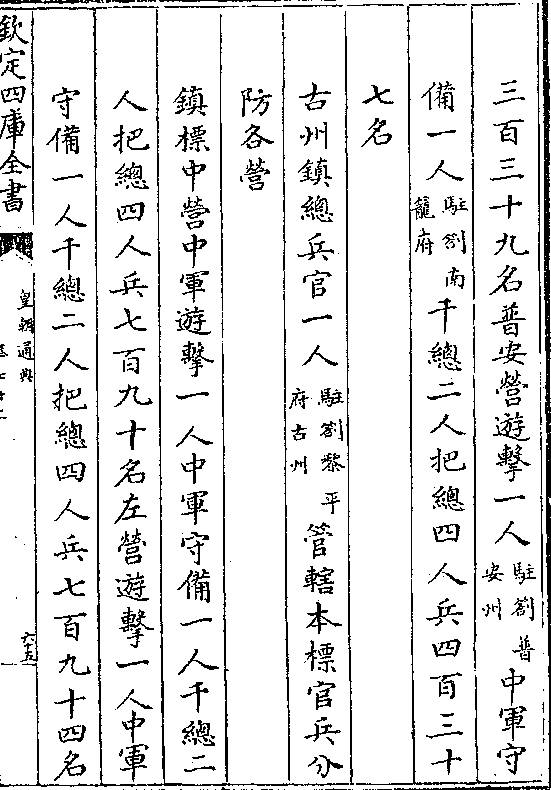 三百三十九名普安營遊擊一人駐劄普安州中軍守
備一人駐劄南籠府千總二人把總四人兵四百三十
七名
古州鎮總兵官一人駐劄黎平府古州管轄本標官兵分
防各營
鎮標中營中軍遊擊一人中軍守備一人千總二
人把總四人兵七百九十名左營遊擊一人中軍
守備一人千總二人把總四人兵七百九十四名
欽定四庫全書
皇朝通典
六十五